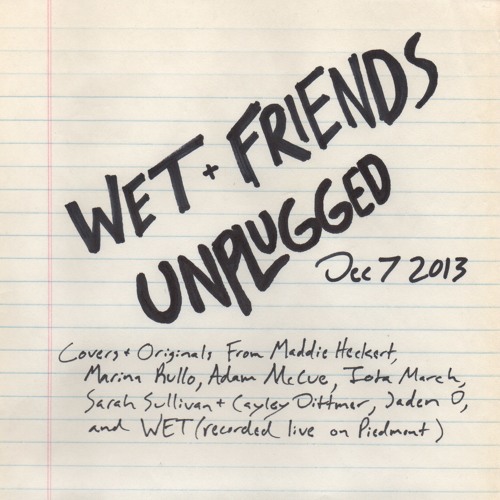 WET + FRIENDS
UNPLUGGED
Dec 7 2013
Covers + Originals From Maddie Heckert,
Marina Rullo, Adam McCue, Iota March,
Sarah Sullivan + Cayley Dittmer, Jaden O,
and WET (recorded live on Piedmont)